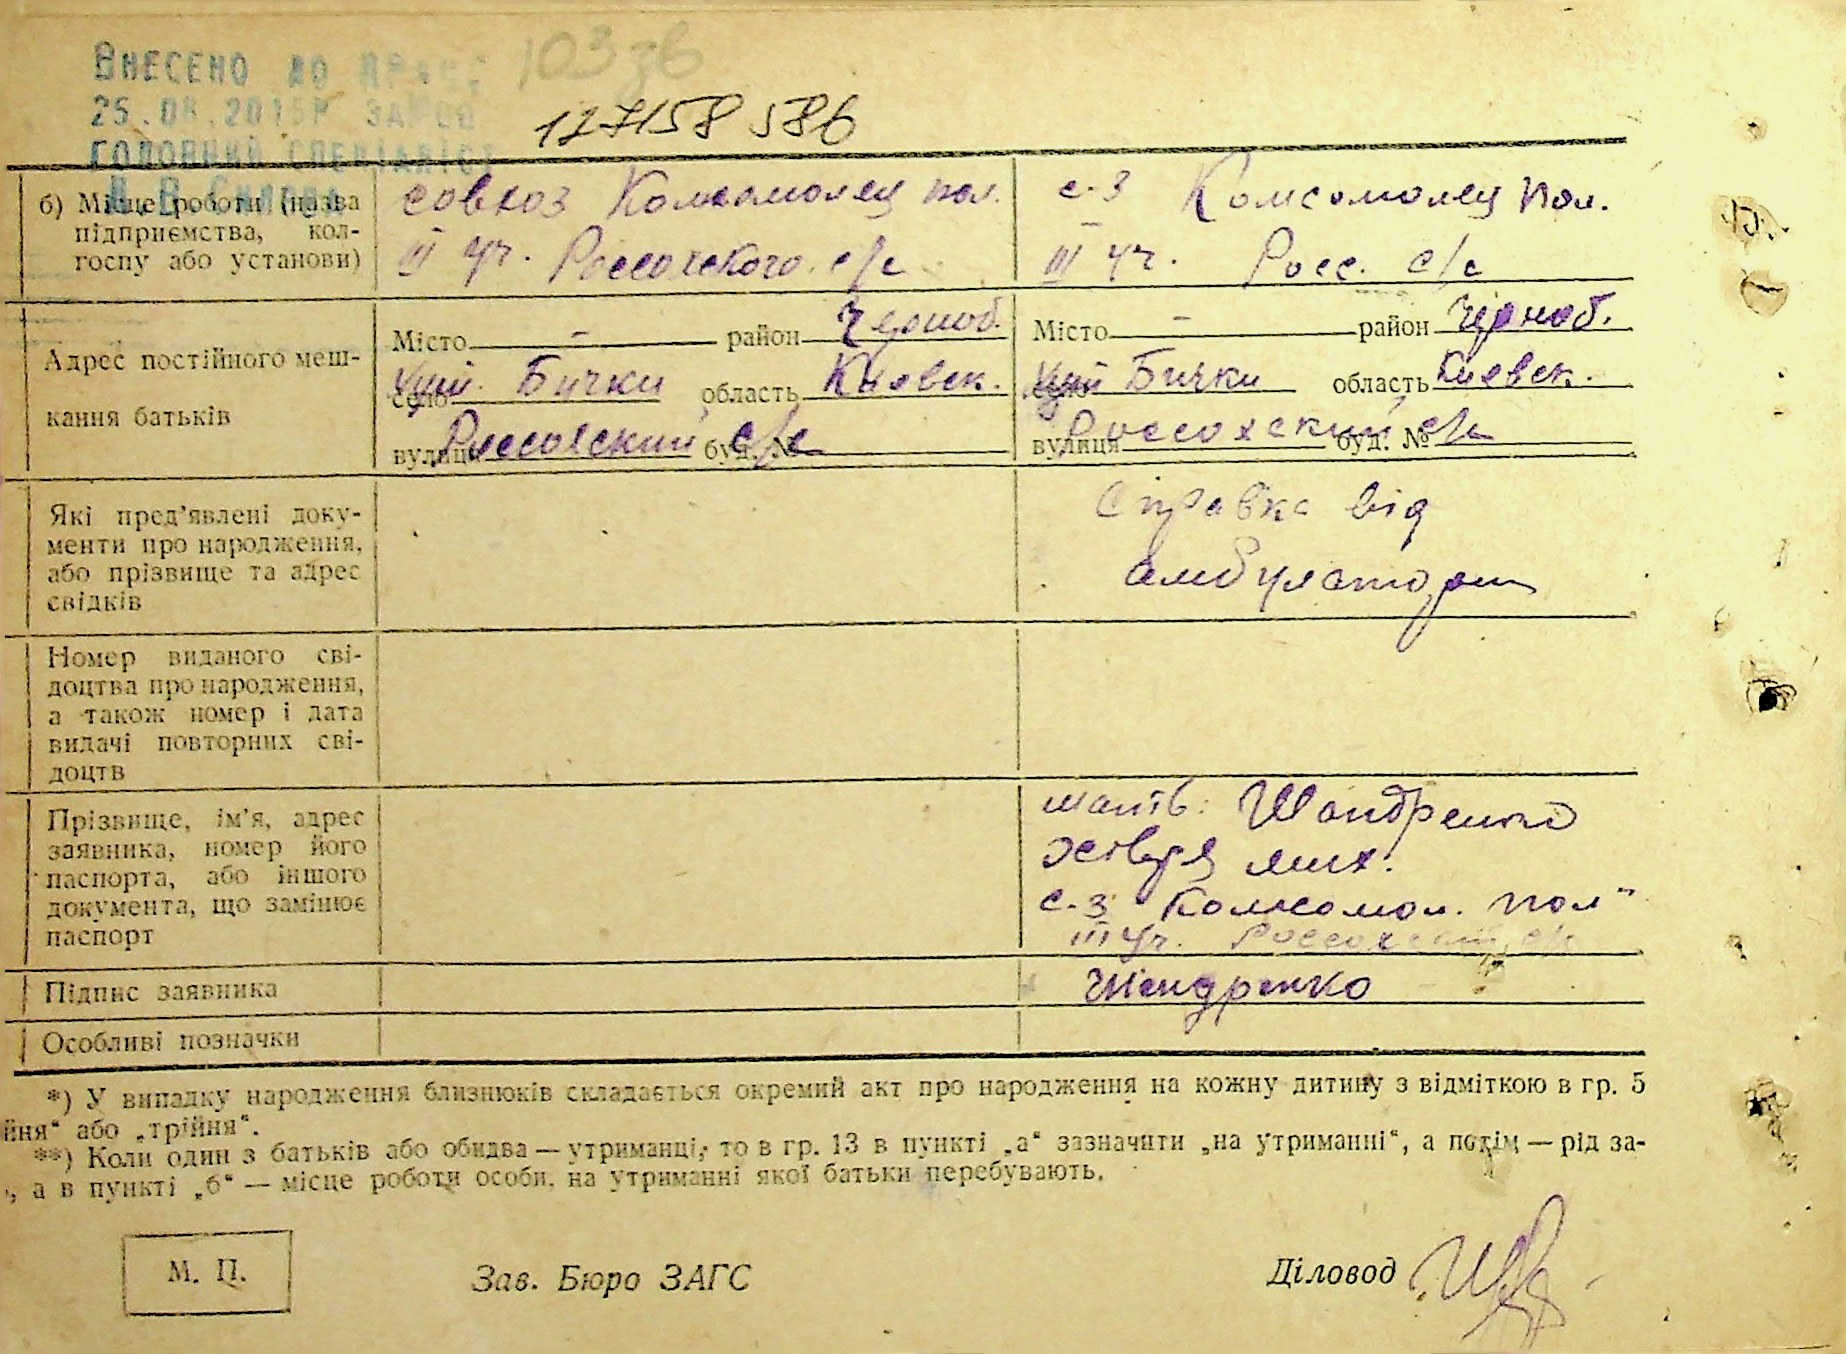 Внесено до
25.08.2015р
головний спеціаліст
103 зв
127158 586
б) Місце роботи (назва підприємства, колгоспу або установи)
совхоз Комсомолец пол.
III уч. Россохского с/с
с-з Комсомолец пол.
III уч. Росс. с/с
Адрес постійного мешкання батьків
Місто — район Черноб.
село Бички область Киевск.
вулиця Россохский с/с буд. №
Місто — район Черноб.
село Бички область Киевск.
вулиця Россохский с/с буд. №
Які пред'явлені документи про народження, або прізвище та адрес свідків
Справка від
амбулатории
Номер виданого свідоцтва про народження, а також номер і дата видачі повторних свідоцтв
Прізвище, ім'я, адрес заявника, номер його паспорта, або іншого документа, що замінює паспорт
мать: Шандренко
мих.
с-з Комсомол. пол"
III уч. Россохский с/с
Підпис заявника
Шендренко
Особливі позначки
*) У випадку народження близнюків складається окремий акт про народження на кожну дитину з відміткою в гр. 5
йня" або „трійня".
**) Коли один з батьків або обидва — утриманці, то в гр. 13 в пункті „а" зазначити „на утриманні", а потім — рід за-
, а в пункті „б" — місце роботи особи, на утриманні якої батьки перебувають.
М. П.
Зав. Бюро ЗАГС
Діловод